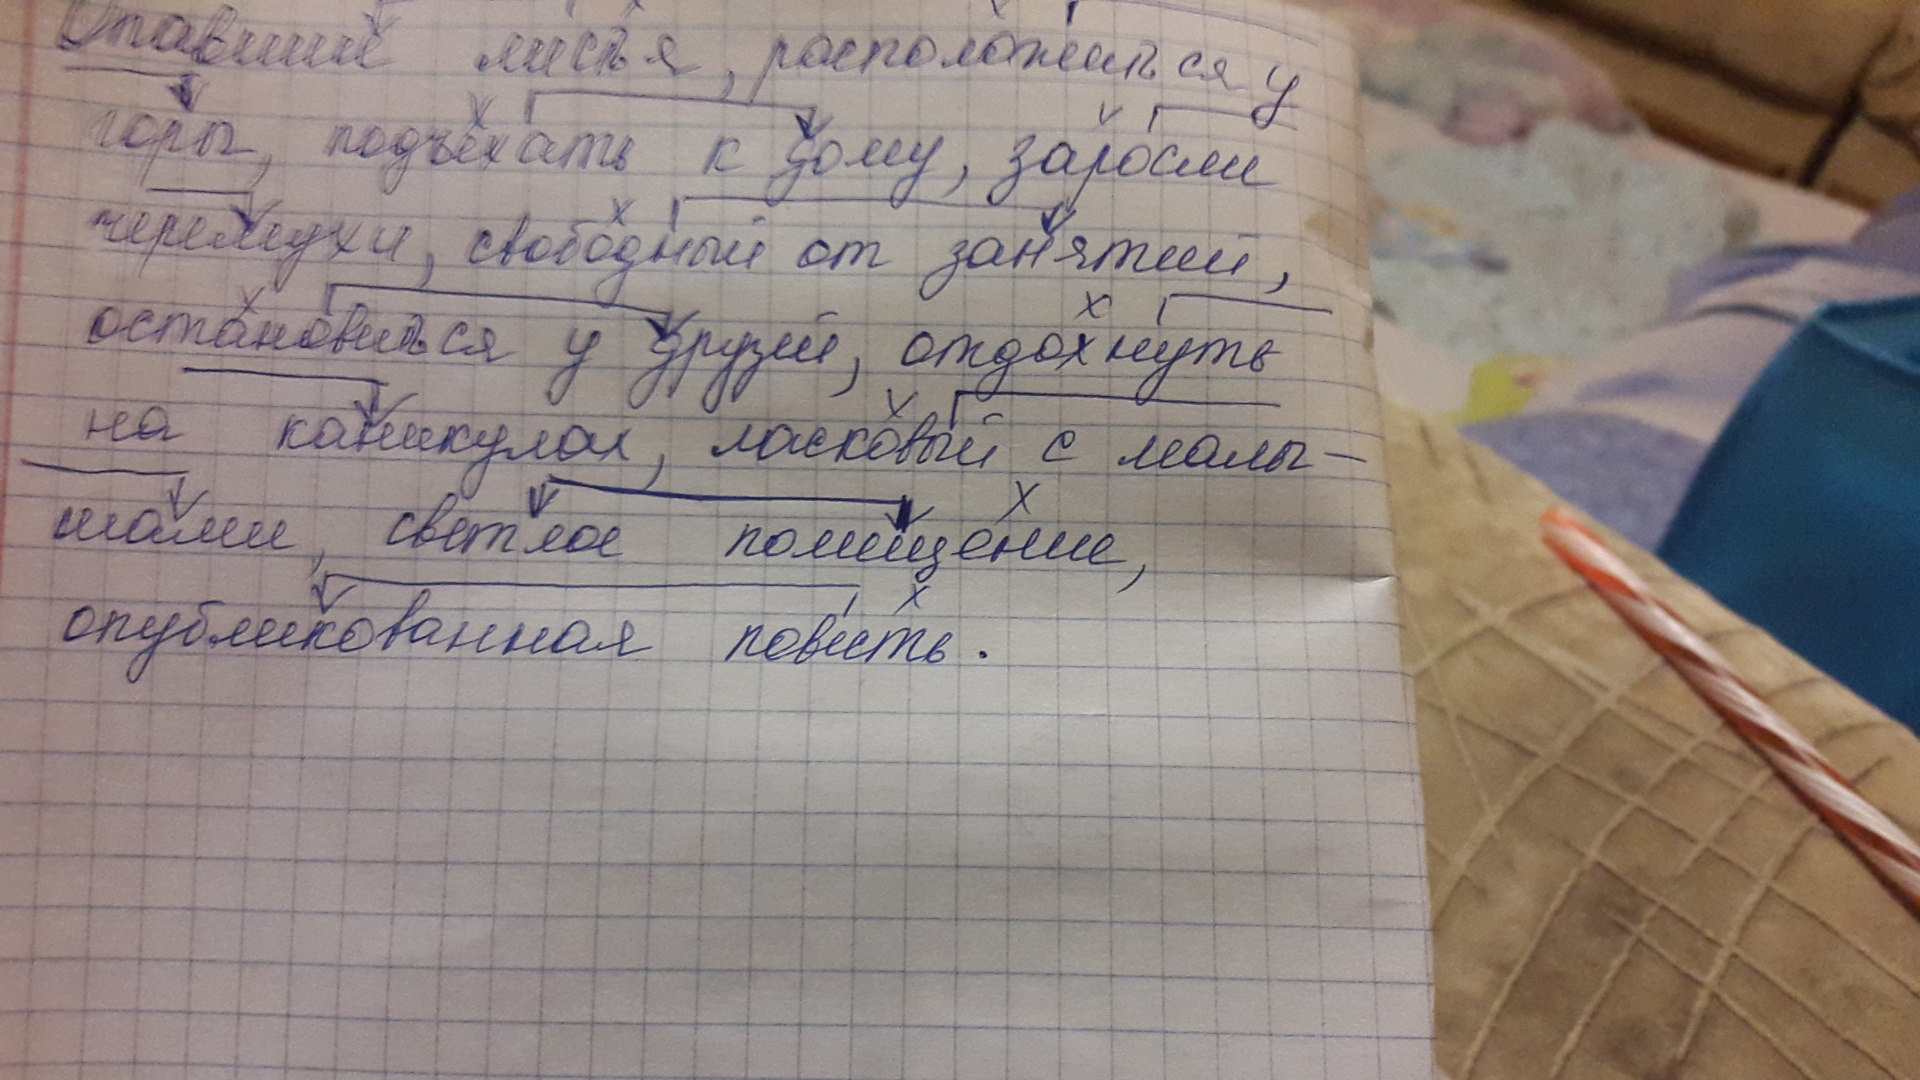 Опавшие листья, расположиться у
горы, подъехать к дому, заросли
черемухи, свободный от занятий,
остановиться у друзей, отдохнуть
на каникулах, ласковый с малы-
шами, светлое помещение,
опубликованная повесть.